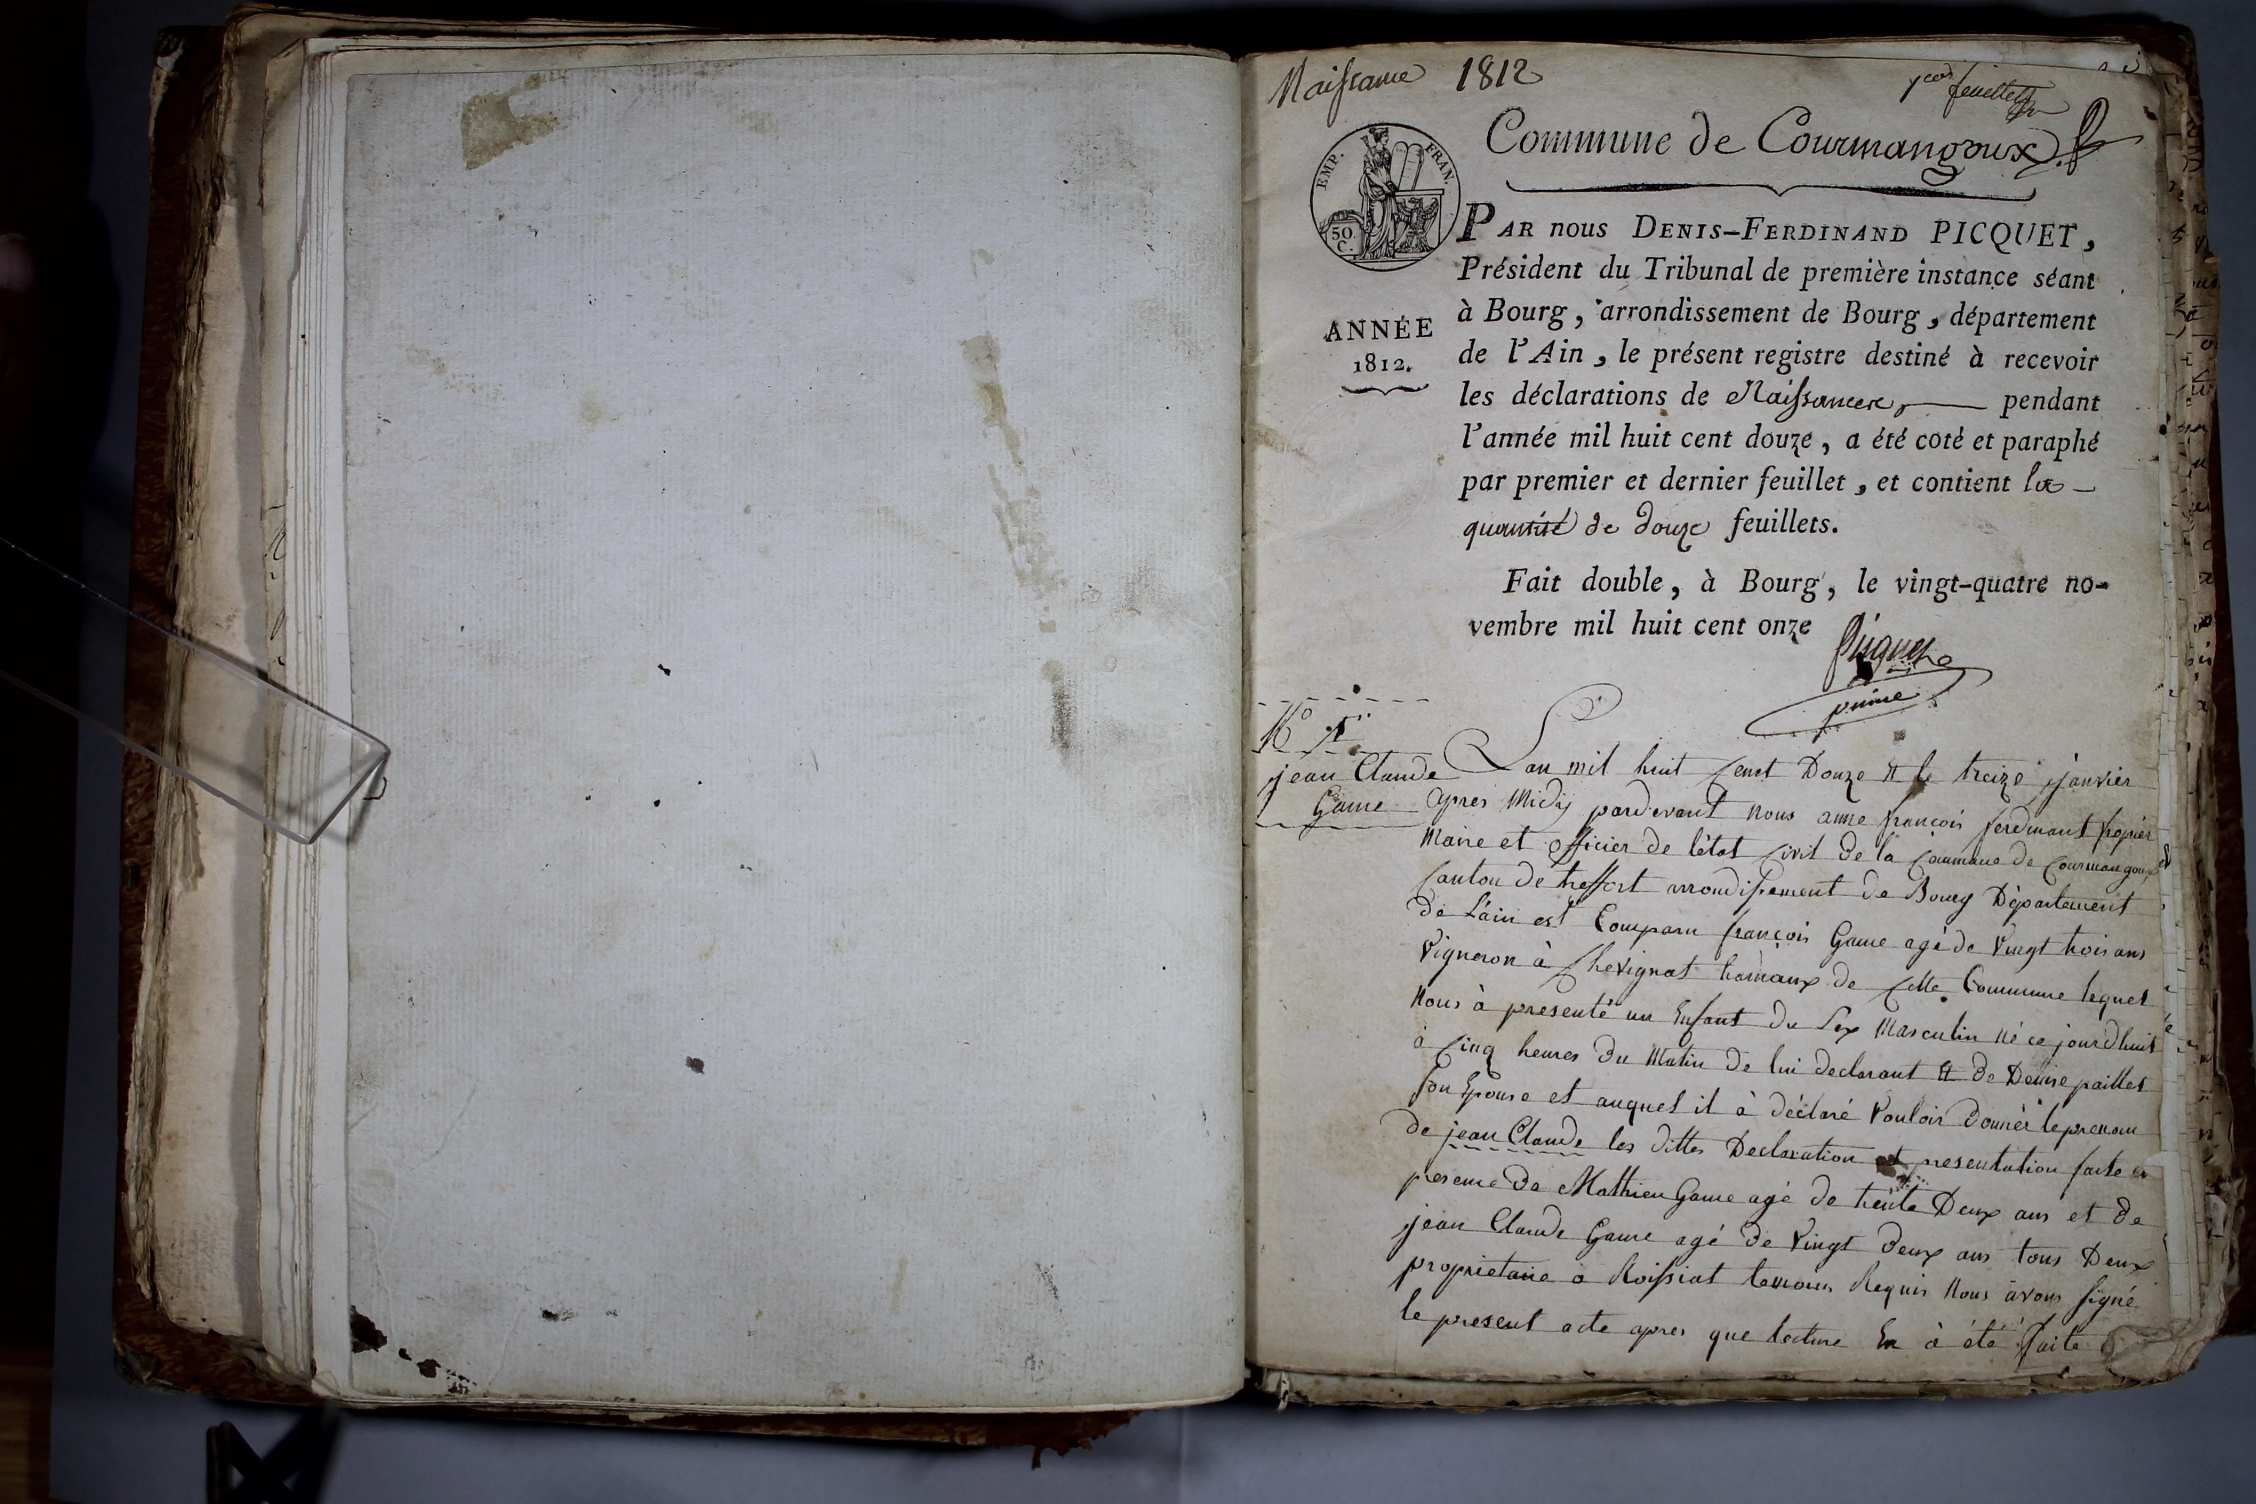 Naissance 1812
1er feuillet
Commune de Courmangoux.
EMP. FRAN.
50 C.
ANNÉE
1812.
PAR nous DENIS-FERDINAND PICQUET,
Président du Tribunal de première instance séant
à Bourg, arrondissement de Bourg, département
de l'Ain, le présent registre destiné à recevoir
les déclarations de Naissances, pendant
l'année mil huit cent douze, a été coté et paraphé
par premier et dernier feuillet, et contient la
quantité de douze feuillets.
Fait double, à Bourg, le vingt-quatre no-
vembre mil huit cent onze
Picquet
N° 1er
jean Claude
Game
Lan mil huit Cent Douze & le treize janvier
apres Midy pardevant nous anne françois ferdinant
Maire et officier de létat Civil de la Commune de Courmangoux
Canton de treffort arrondissement de Bourg Département
de Lain est Comparu françois Game agé de Vingt trois ans
Vigneron à Chevignat hamaux de Cette Commune lequel
Nous à presenté un Enfant du Sex Masculin né ce jourdhuit
à Cinq heures du Matin de lui declarant & de Denise paillet
Son Epouse et auquel il à déclaré Vouloir Donner le prenom
de jean Claude les dittes Declaration et presentation faite en
presence de Mathieu Game agé de trente Deux ans et de
jean Claude Game agé de Vingt deux ans tous Deux
proprietaire a Roissiat temoins Requis Nous avons signé
le present acte apres que lecture En à été faite